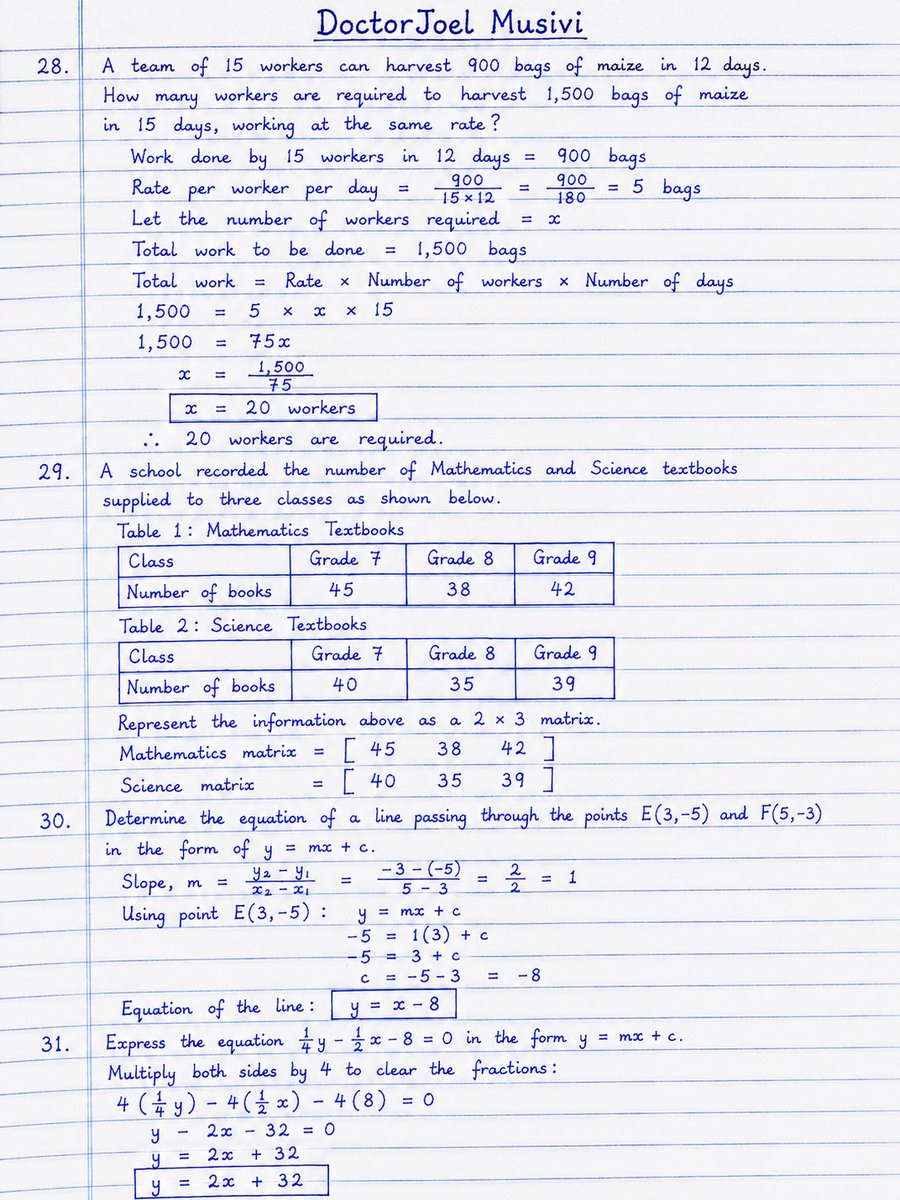 DoctorJoel Musivi
28. A team of 15 workers can harvest 900 bags of maize in 12 days.
How many workers are required to harvest 1,500 bags of maize
in 15 days, working at the same rate?
Work done by 15 workers in 12 days = 900 bags
Rate per worker per day = 900/(15 × 12) = 900/180 = 5 bags
Let the number of workers required = x
Total work to be done = 1,500 bags
Total work = Rate × Number of workers × Number of days
1,500 = 5 × x × 15
1,500 = 75x
x = 1,500/75
x = 20 workers
∴ 20 workers are required.
29. A school recorded the number of Mathematics and Science textbooks
supplied to three classes as shown below.
Table 1: Mathematics Textbooks
Class Grade 7 Grade 8 Grade 9
Number of books 45 38 42
Table 2: Science Textbooks
Class Grade 7 Grade 8 Grade 9
Number of books 40 35 39
Represent the information above as a 2 × 3 matrix.
Mathematics matrix = [ 45 38 42 ]
Science matrix = [ 40 35 39 ]
30. Determine the equation of a line passing through the points E(3,-5) and F(5,-3)
in the form of y = mx + c.
Slope, m = (y₂ - y₁)/(x₂ - x₁) = (-3 - (-5))/(5 - 3) = 2/2 = 1
Using point E(3,-5): y = mx + c
-5 = 1(3) + c
-5 = 3 + c
c = -5 - 3 = -8
Equation of the line: y = x - 8
31. Express the equation 1/4 y - 1/2 x - 8 = 0 in the form y = mx + c.
Multiply both sides by 4 to clear the fractions:
4 (1/4 y) - 4(1/2 x) - 4(8) = 0
y - 2x - 32 = 0
y = 2x + 32
y = 2x + 32